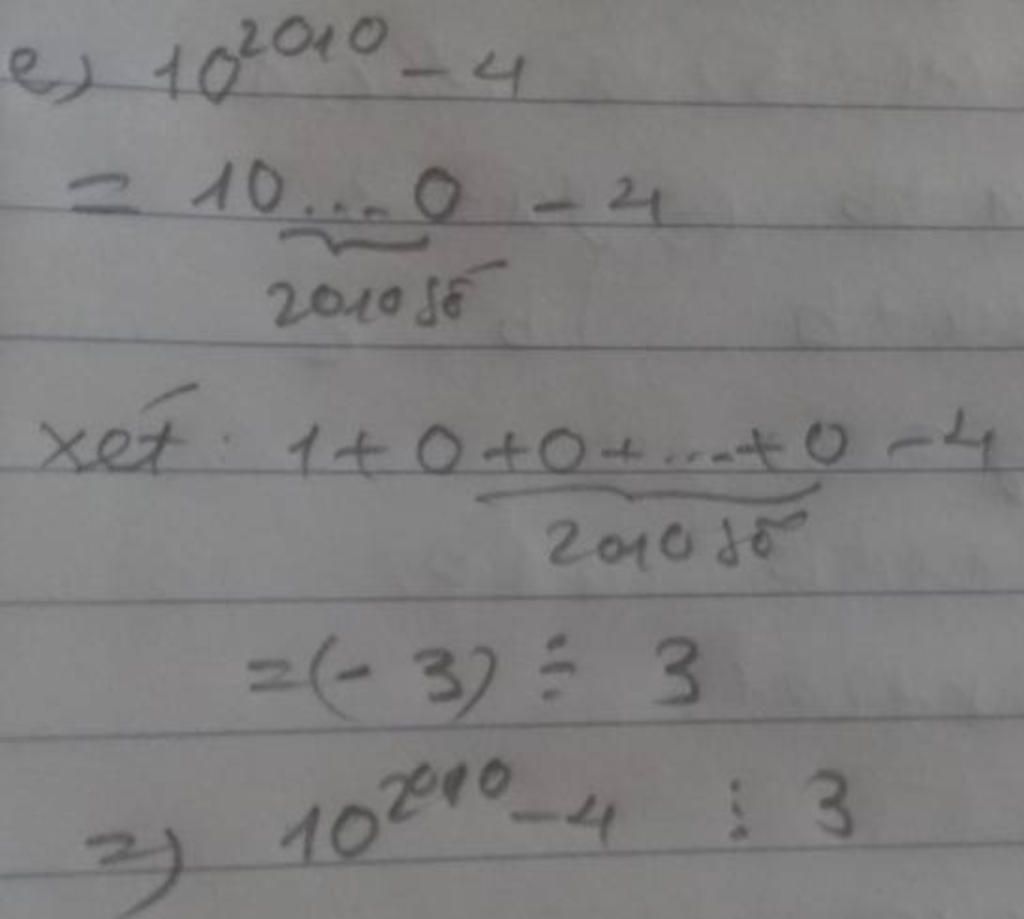 e) 10^2010 - 4
= 10...0 - 4
2010 số
xét: 1 + 0 + 0 + ... + 0 - 4
2010 số
= (- 3) ⋮ 3
=) 10^2010 - 4 ⋮ 3